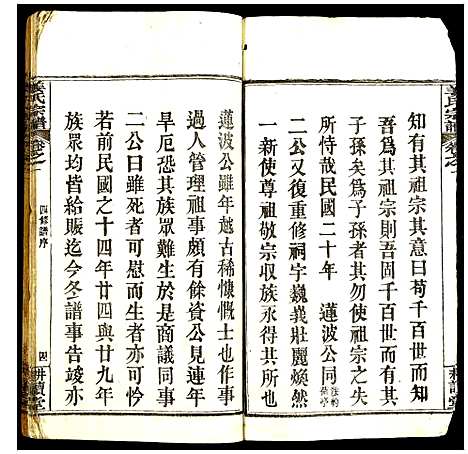 知有其祖宗其意曰苟千百世而知
吾爲其祖宗則吾固千百世而有其
子孫矣爲子孫者其勿使祖宗之失
所恃哉民國二十年　蓮波公同
二公又復重修祠宇巍義壯麗煥然
一新使尊祖敬宗收族永得其所
蓮波公雖年越古稀慷慨士也作事
過人管理祖事頗有餘資公見連年
旱厄恐其族眾難生於是商議同事
二公曰雖死者可慰而生者亦可怜
若前民國之十四年廿四與廿九年
族眾均皆給賑迄今冬譜事告竣亦
姜氏宗譜
卷之一
四修譜序
四
耕讀堂